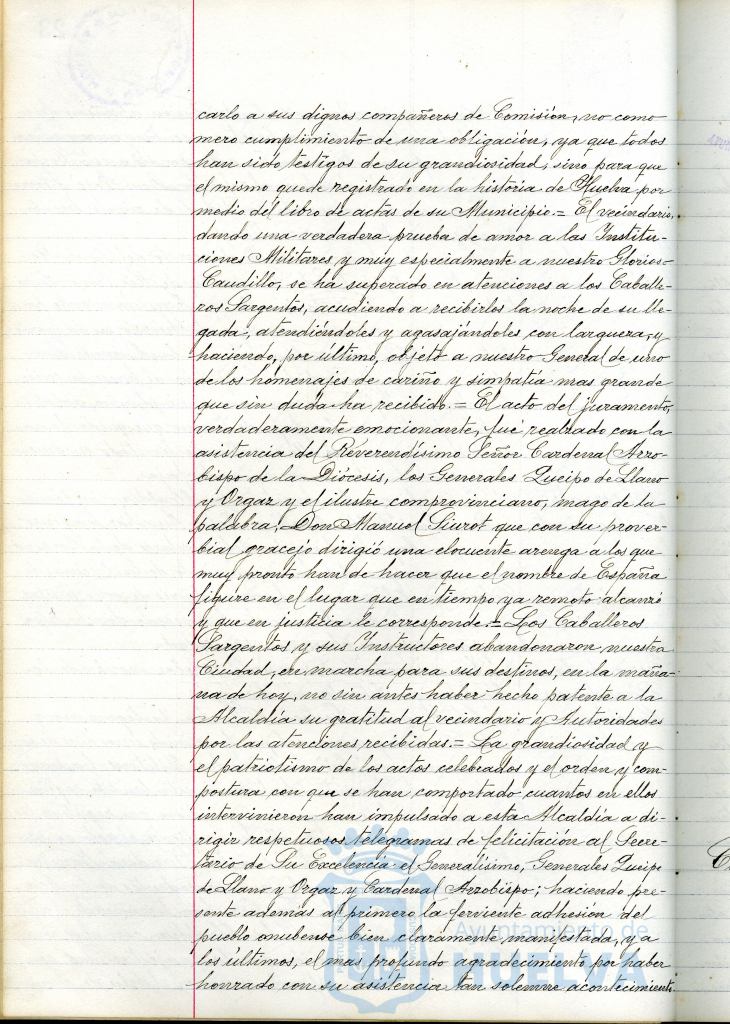 carlo a sus dignos compañeros de Comisión, no como
mero cumplimiento de una obligación, ya que todos
han sido testigos de su grandiosidad, sinó para que
el mismo quede registrado en la historia de Huelva por
medio del libro de actas de su Municipio.= El vecindario,
dando una verdadera prueba de amor a las Institu-
ciones Militares y muy especialmente a nuestro Glorioso
Caudillo, se ha superado en atenciones a los Caballe-
ros Sargentos, acudiendo a recibirlos la noche de su lle-
gada, atendiéndoles y agasajándoles con largueza, y
haciendo, por último, objeto a nuestro General de uno
de los homenajes de cariño y simpatía mas grande
que sin duda ha recibido.= El acto del juramento,
verdaderamente emocionante, fué realzado con la
asistencia del Reverendísimo Señor Cardenal Arzo-
bispo de la Diócesis, los Generales Queipo de Llano
y Orgaz y el ilustre comprovinciano, mago de la
palabra, Don Manuel Siurot que con su prover-
bial gracejo dirigió una elocuente arenga a los que
muy pronto han de hacer que el nombre de España
figure en el lugar que en tiempo ya remoto alcanzó
y que en justicia le corresponde.= Los Caballeros
Sargentos y sus Instructores abandonaron nuestra
Ciudad, en marcha para sus destinos, en la maña-
na de hoy, no sin antes haber hecho patente a la
Alcaldía su gratitud al vecindario y Autoridades
por las atenciones recibidas.= La grandiosidad y
el patriotismo de los actos celebrados y el orden y com-
postura con que se han comportado cuantos en ellos
intervinieron han impulsado a esta Alcaldía a di-
rigir respetuosos telegramas de felicitación al Secre-
tario de Su Excelencia el Generalísimo, Generales Queipo
de Llano y Orgaz y Cardenal Arzobispo; haciendo pre-
sente ademas al primero la ferviente adhesión del
pueblo onubense bien claramente manifestada, y a
los últimos, el mas profundo agradecimiento por haber
honrado con su asistencia tan solemne acontecimiento.
Ayuntamiento de
HUELVA